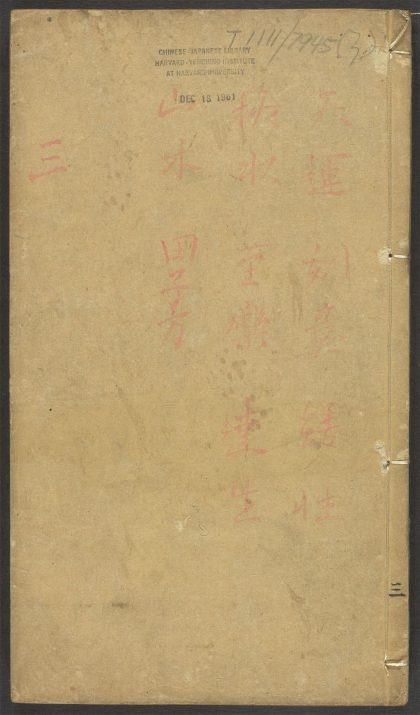 T 1111/7945 (3)
CHINESE-JAPANESE LIBRARY
HARVARD-YENCHING INSTITUTE
AT HARVARD UNIVERSITY
DEC
天運 刻意 繕性
秋水 至樂 達生
山木 田子方
三
三